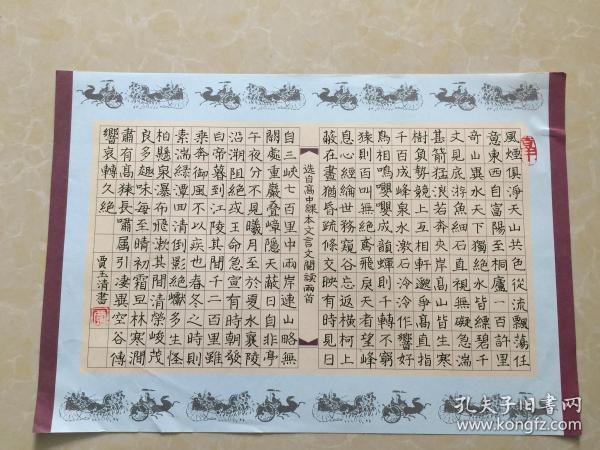 風煙俱淨天山共色從流飄蕩任
意東西自富陽至桐廬一百許里
奇山異水天下獨絕水皆縹碧千
丈見底游魚細石直視無礙急湍
甚箭猛浪若奔夾岸高山皆生寒
樹負勢競上互相軒邈爭高直指
千百成峰泉水激石泠泠作響好
鳥相鳴嚶嚶成韻蟬則千轉不窮
猿則百叫無絕鳶飛戾天者望峰
息心經綸世務窺谷忘返橫柯上
蔽在晝猶昏疏條交映有時見日
選自高中課本文言文閱讀兩首
自三峽七百里中兩岸連山略無
闕處重巖疊嶂隱天蔽日自非亭
午夜分不見曦月至於夏水襄陵
沿溯阻絕或王命急宣有時朝發
白帝暮到江陵其間千二百里雖
乘奔御風不以疾也春冬之時則
素湍綠潭回清倒影絕巘多生怪
柏懸泉瀑布飛漱其間清榮峻茂
良多趣味每至晴初霜旦林寒澗
肅有高猿長嘯屬引淒異空谷傳
響哀轉久絕
賈玉清書
孔夫子旧书网
www.kongfz.com